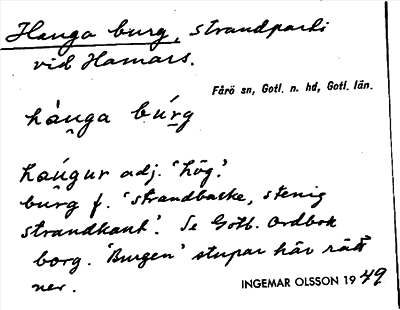 Hauga burg, strandparti
vid Hamars.
Fårö sn, Gotl. n. hd, Gotl. län.
hàuga búrg
haúgur adj. 'hög.'
burg f. 'strandbacke, stenig
strandkant'. Se Gotl. ordbok
borg. 'Burgen' stupar här rätt
ner.
INGEMAR OLSSON 1949